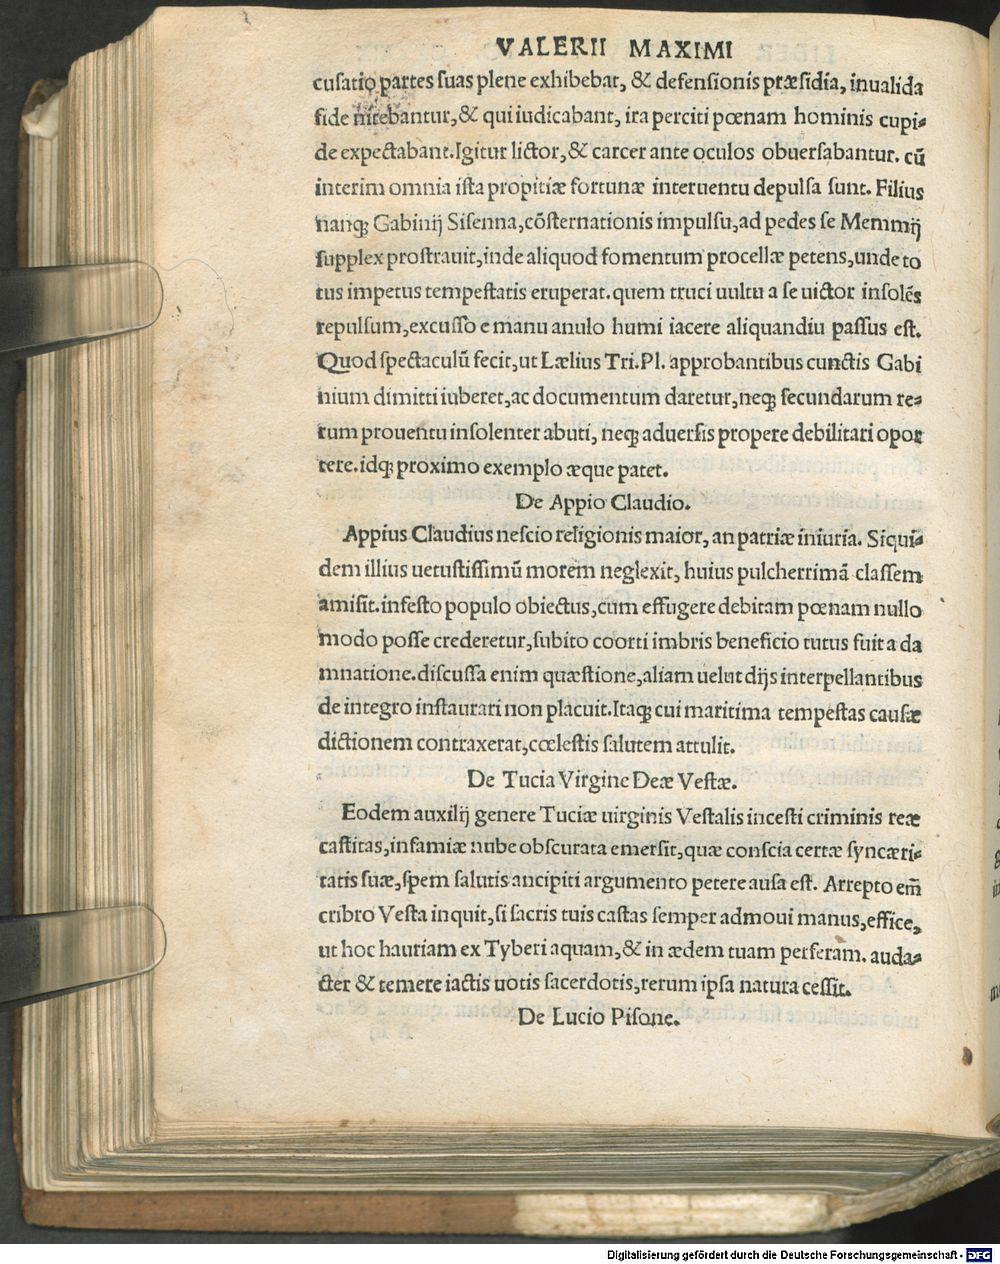 VALERII MAXIMI
cusatio partes suas plene exhibebat, & defensionis præsidia, inualida
fide nitebantur,& qui iudicabant, ira perciti pœnam hominis cupi-
de expectabant.Igitur lictor,& carcer ante oculos obuersabantur. cū
interim omnia ista propitiæ fortunæ interuentu depulsa sunt. Filius
nanq; Gabinij Sisenna,cōsternationis impulsu,ad pedes se Memmij
supplex prostrauit,inde aliquod fomentum procellæ petens,unde to
tus impetus tempestatis eruperat.quem truci uultu a se uictor insolēs
repulsum,excusso e manu anulo humi iacere aliquandiu passus est.
Quod spectaculū fecit,ut Lælius Tri.Pl. approbantibus cunctis Gabi
nium dimitti iuberet,ac documentum daretur,neq; secundarum re-
rum prouentu insolenter abuti, neq; aduersis propere debilitari opor
tere.idq; proximo exemplo æque patet.
De Appio Claudio.
Appius Claudius nescio religionis maior, an patriæ iniuria. Siqui-
dem illius uetustissimū morem neglexit, huius pulcherrimā classem
amisit.infesto populo obiectus,cum effugere debitam pœnam nullo
modo posse crederetur,subito coorti imbris beneficio tutus fuit a da
mnatione.discussa enim quæstione,aliam uelut dijs interpellantibus
de integro instaurari non placuit.Itaq; cui maritima tempestas causæ
dictionem contraxerat,cœlestis salutem attulit.
De Tucia Virgine Deæ Vestæ.
Eodem auxilij genere Tuciæ uirginis Vestalis incesti criminis reæ
castitas,infamiæ nube obscurata emersit,quæ conscia certæ syncæri-
tatis suæ,spem salutis ancipiti argumento petere ausa est. Arrepto em̄
cribro Vesta inquit,si sacris tuis castas semper admoui manus,effice,
ut hoc hauriam ex Tyberi aquam,& in ædem tuam perferam. auda-
cter & temere iactis uotis sacerdotis,rerum ipsa natura cessit.
De Lucio Pisone.
Digitalisierung gefördert durch die Deutsche Forschungsgemeinschaft - DFG